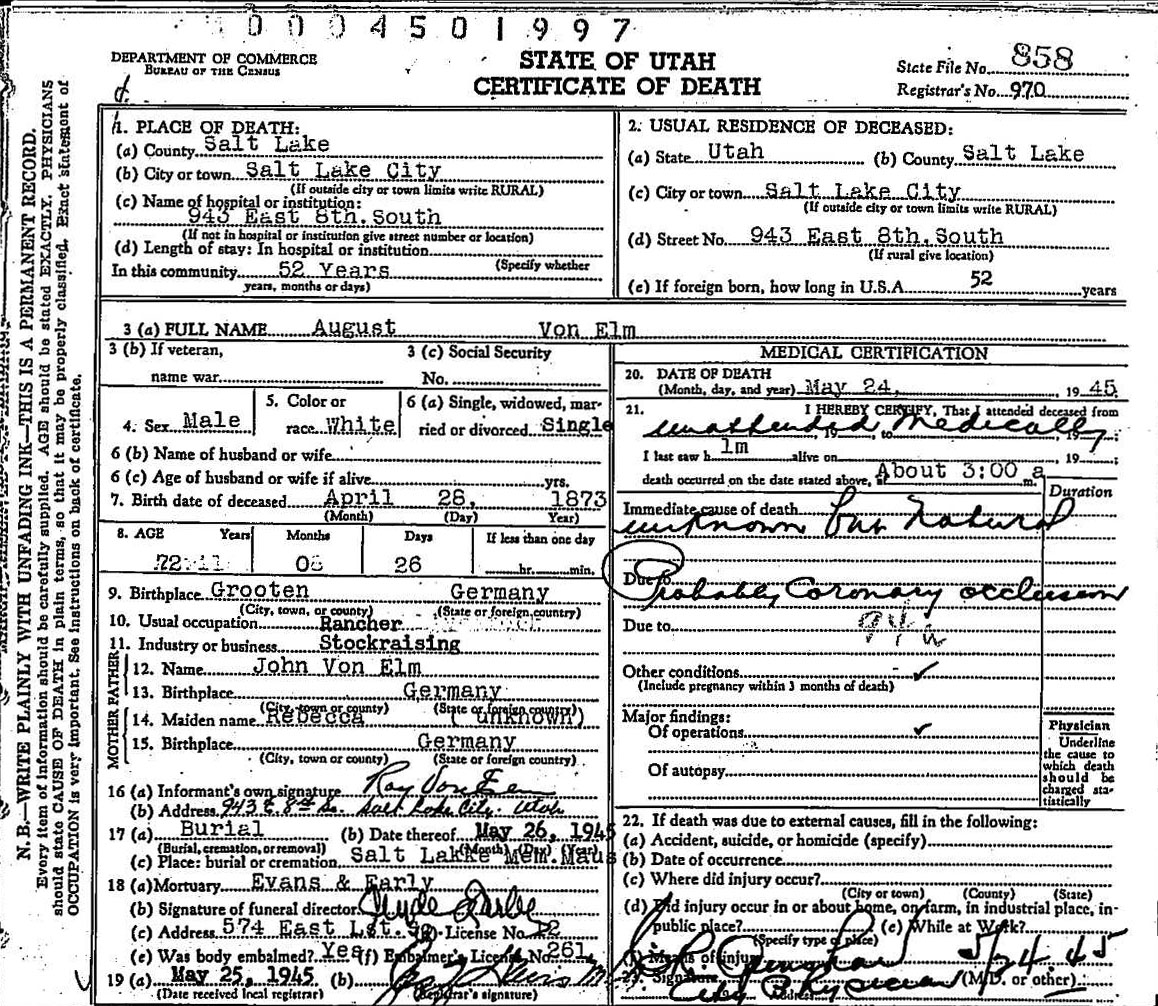 0004501997
DEPARTMENT OF COMMERCE
BUREAU OF THE CENSUS
STATE OF UTAH
CERTIFICATE OF DEATH
State File No. 858
Registrar's No. 970
N. B.—WRITE PLAINLY WITH UNFADING INK—THIS IS A PERMANENT RECORD.
Every item of information should be carefully supplied. AGE should be stated EXACTLY. PHYSICIANS
should state CAUSE OF DEATH in plain terms, so that it may be properly classified. Exact statement of
OCCUPATION is very important. See instructions on back of certificate.
1. PLACE OF DEATH:
(a) County Salt Lake
(b) City or town Salt Lake City
(If outside city or town limits write RURAL)
(c) Name of hospital or institution:
943 East 8th. South
(If not in hospital or institution give street number or location)
(d) Length of stay: In hospital or institution
(Specify whether
In this community 52 Years
years, months or days)
2. USUAL RESIDENCE OF DECEASED:
(a) State Utah (b) County Salt Lake
(c) City or town Salt Lake City
(If outside city or town limits write RURAL)
(d) Street No. 943 East 8th. South
(If rural give location)
(e) If foreign born, how long in U.S.A. 52 years
3 (a) FULL NAME August Von Elm
3 (b) If veteran,
name war
3 (c) Social Security
No.
4. Sex Male
5. Color or
race White
6 (a) Single, widowed, mar-
ried or divorced Single
6 (b) Name of husband or wife
6 (c) Age of husband or wife if alive yrs.
7. Birth date of deceased April 28, 1873
(Month) (Day) Year)
8. AGE Years Months Days If less than one day
72 26 hr. min.
9. Birthplace Grooten Germany
(City, town, or county) (State or foreign country)
10. Usual occupation Rancher
11. Industry or business Stockraising
FATHER
12. Name John Von Elm
13. Birthplace Germany
(City, town or county) (State or foreign country)
MOTHER
14. Maiden name Rebecca ( unknown)
15. Birthplace Germany
(City, town or county) (State or foreign country)
16 (a) Informant's own signature Ray Von Elm
(b) Address 943 E. 8th So. Salt Lake City. Utah
17 (a) Burial (b) Date thereof May 26, 1945
(Burial, cremation, or removal) (Month) (Day) (Year)
(c) Place: burial or cremation Salt Lakke Mem. Maus
18 (a) Mortuary Evans & Early
(b) Signature of funeral director
(c) Address 574 East 1st. So. License No.
(e) Was body embalmed? Yes (f) Embalmer's License No. 261
19 (a) May 25, 1945 (b)
(Date received local registrar) (Registrar's signature)
MEDICAL CERTIFICATION
20. DATE OF DEATH
(Month, day, and year) May 24, 1945
21. I HEREBY CERTIFY, That I attended deceased from
unattended Medically 19 to 19
I last saw h im alive on 19
death occurred on the date stated above, at About 3:00 a m.
Duration
Immediate cause of death
unknown but Natural
Due to
Probably Coronary occlusion
Due to
94a
Other conditions ✓
(Include pregnancy within 3 months of death)
Major findings:
Of operations ✓
Of autopsy
Physician
Underline
the cause to
which death
should be
charged sta-
tistically
22. If death was due to external causes, fill in the following:
(a) Accident, suicide, or homicide (specify)
(b) Date of occurrence
(c) Where did injury occur?
(City or town) (County) (State)
(d) Did injury occur in or about home, on farm, in industrial place, in-
public place? (e) While at Work?
(Specify type of place)
(f) Means of injury 5/24.45
23. Signature (M.D. or other)
City Physician
Address